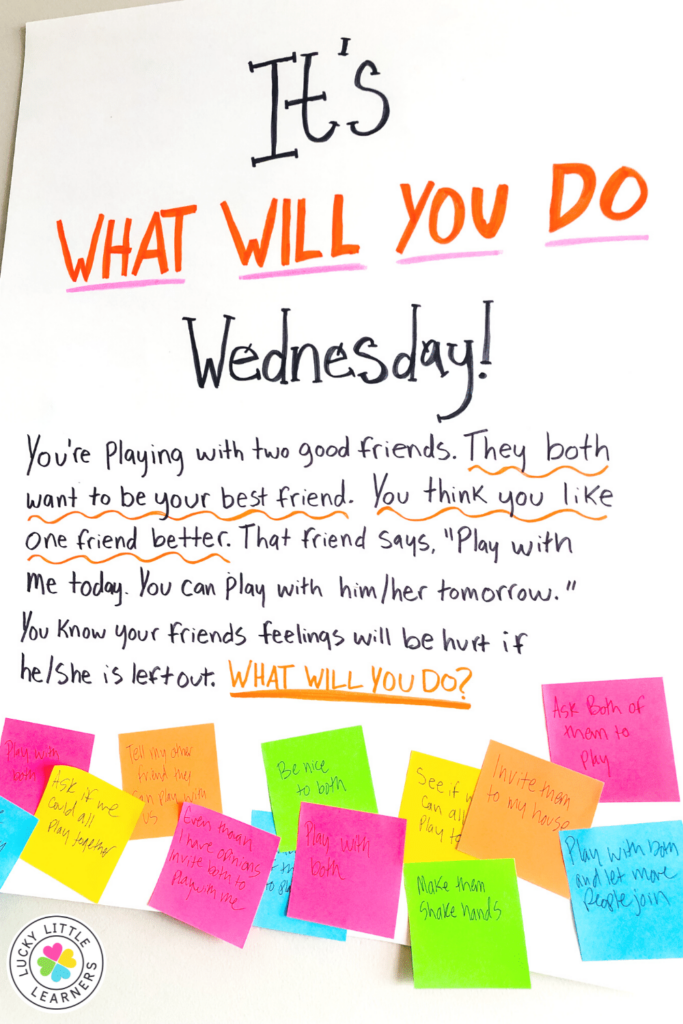 It's
WHAT WILL YOU DO
Wednesday!
You're Playing with two good friends. They both
want to be your best friend. You think you like
one friend better. That friend says, "Play with
me today. You can play with him/her tomorrow."
You know your friends feelings will be hurt if
he/she is left out. WHAT WILL YOU DO?
Play with
both
Ask if we
could all
Play together
Tell my other
friend they
can play with
us
Even though
I have opinions
invite both to
Play with me
Be nice
to both
Play with
both
See if
can all
Play
Invite them
to my house
Make them
Shake hands
Ask Both of
them to
Play
Play with both
and let more
People join
LUCKY LITTLE
LEARNERS